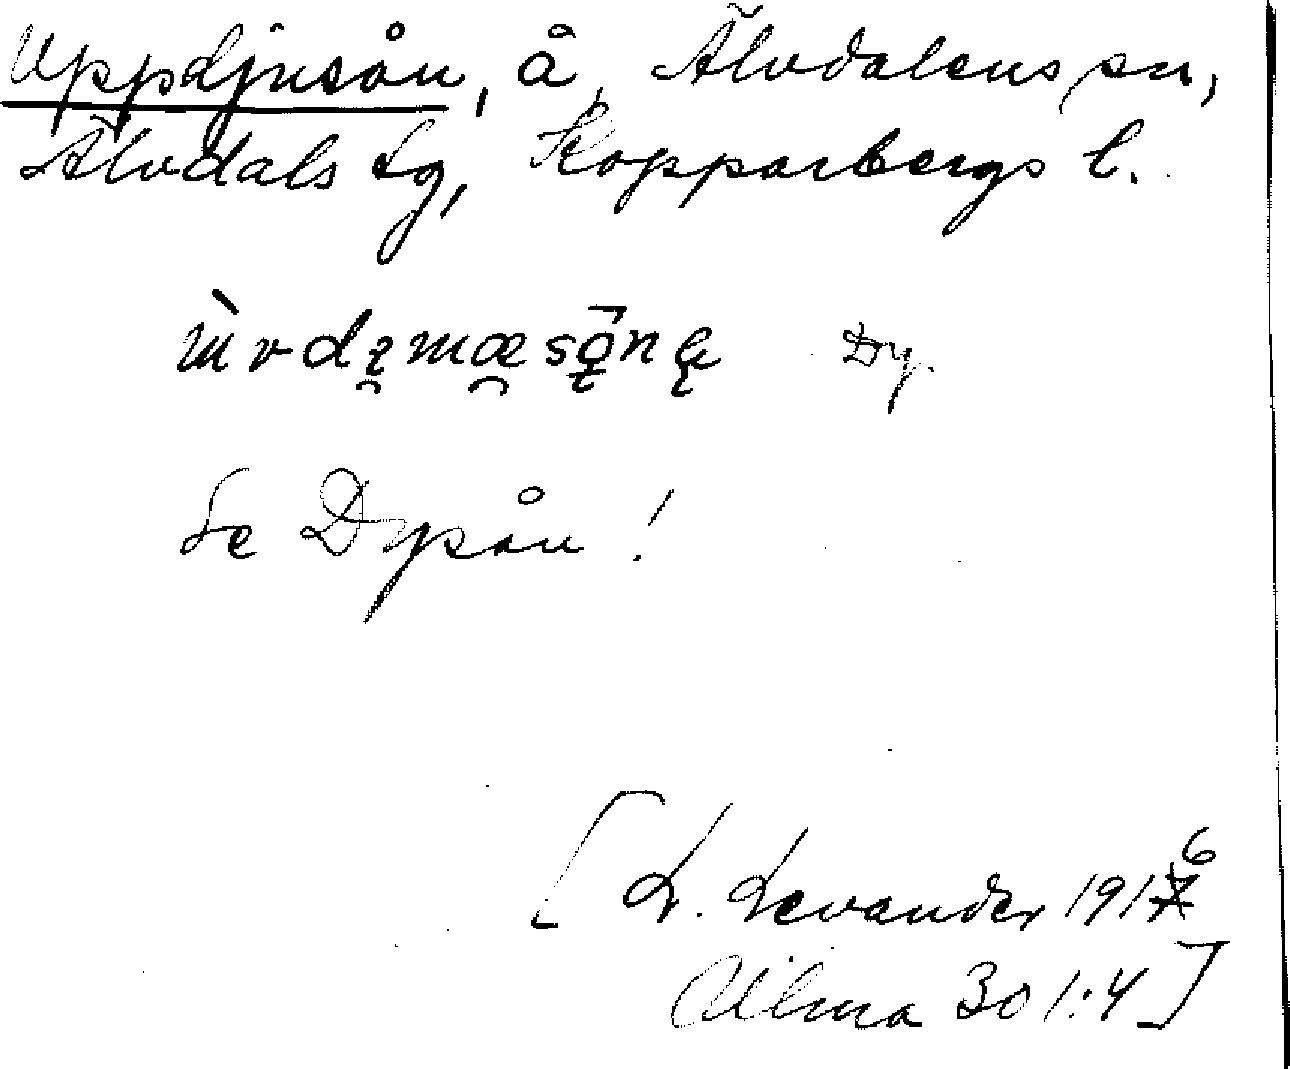 Uppdjusån, å, Älvdalens sn,
Älvdals tg, Kopparbergs l.
Dy.
Se Dysån!
[L. Levander 1916
Ulma 301:4]